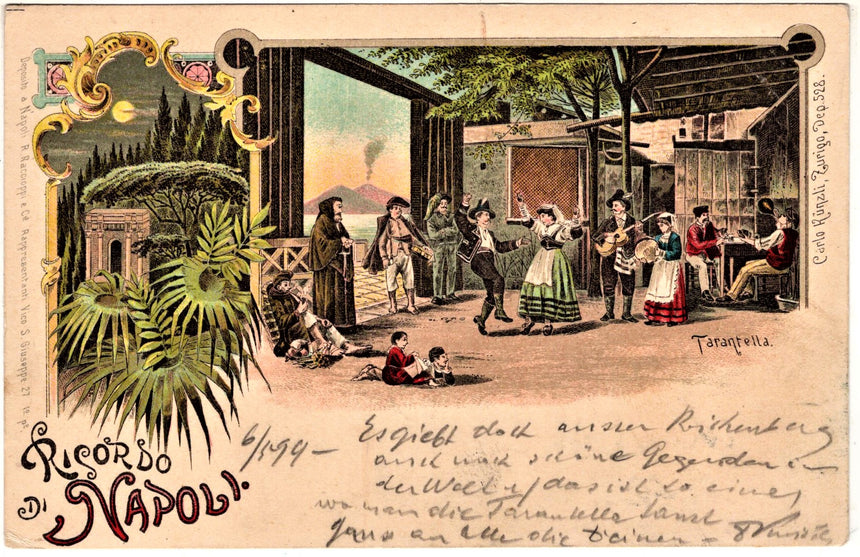 Deposito a Napoli R. Raccioppi e Cº. Rappresentanti Vico S. Giuseppe 27 1º pº
Carlo Künzli, Zurigo, Dep. 528.
Tarantella.
RICORDO
DI NAPOLI.
6/5 99 – Es giebt doch ausser Reichenberg
auch noch schöne Gegenden in
der Welt u/ das ist so eine,
wo man die Tarantella tanzt
Gruss an alle die Deinen –